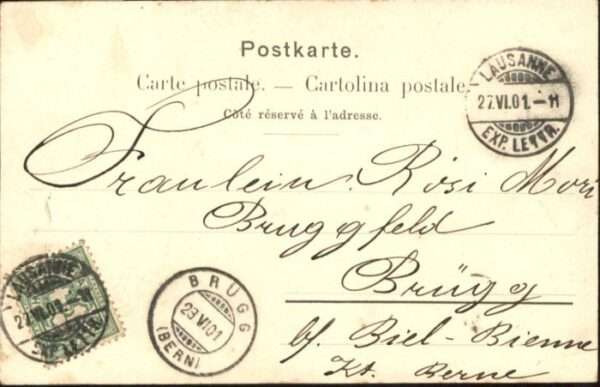 Postkarte.
Carte postale. — Cartolina postale.
Côté réservé à l'adresse.
LAUSANNE
27.VI.01.-11
EXP. LETTR.
Fräulein Rösi Mori
Bruggfeld
Brügg
bf. Biel-Bienne
Kt. Berne
LAUSANNE
27.VI.01.-11
EXP. LETTR.
BRÜGG
23 VI 01
(BERN)